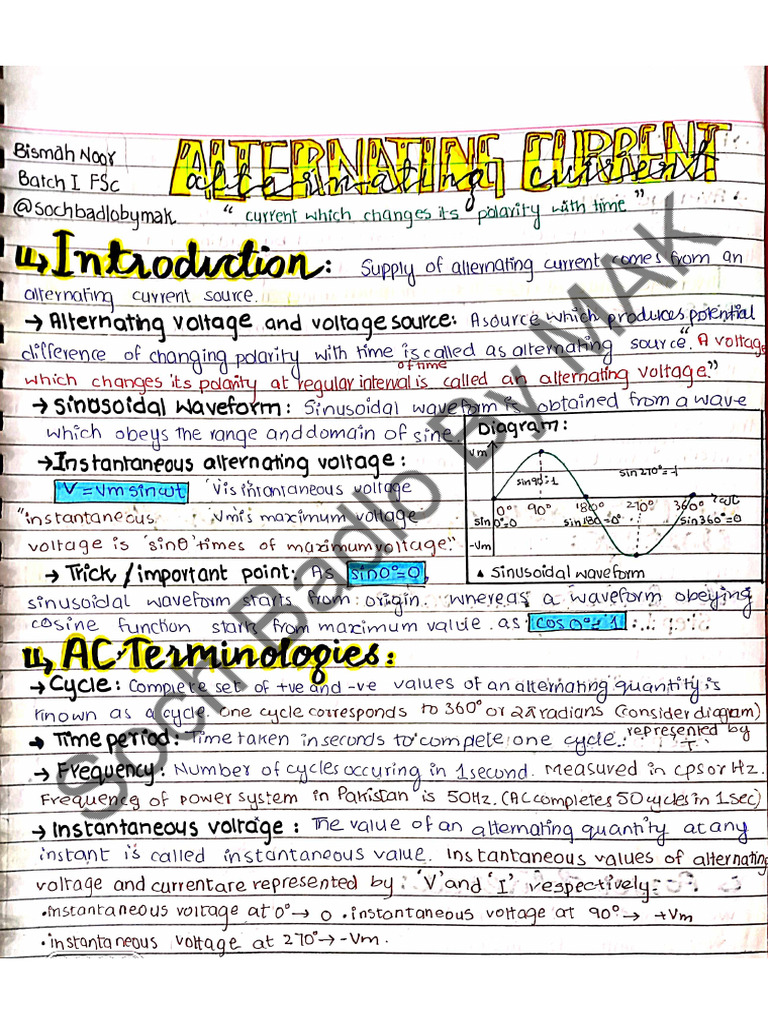 Bismah Noor
Batch I FSc
@sochbadlobymak
ALTERNATING CURRENT
alternating current
“ current which changes its polarity with time ”
Introduction: Supply of alternating current comes from an
alternating current source.
→ Alternating voltage and voltage source: A source which produces potential
difference of changing polarity with time is called as alternating source. “ A voltage
which changes its polarity at regular interval of time is called an alternating voltage.”
→ Sinosoidal waveform: Sinusoidal waveform is obtained from a wave
which obeys the range and domain of sine
→ Instantaneous alternating voltage:
V = Vm sinωt V is intantaneous voltage
“instantaneous Vm is maximum voltage
voltage is 'sinθ' times of maximum voltage”
Diagram:
Vm
sin90°=1
sin270°=-1
0° 90° 180° 270° 360° ωt
sin0°=0 sin180=0° sin360°=0
-Vm
▲ Sinusoidal waveform
→ Trick / important point: As sin0°=0,
sinusoidal waveform starts from origin. whereas a waveform obeying
cosine function starts from maximum value. as cos0°=1
AC-Terminologies:
→ Cycle: Complete set of +ve and -ve values of an alternating quantity is
known as a cycle. One cycle corresponds to 360° or 2π radians (consider diagram)
→ Time period: Time taken in seconds to complete one cycle. represented by T.
→ Frequency: Number of cycles occuring in 1 second. Measured in cps or Hz.
Frequency of power system in Pakistan is 50Hz. (AC completes 50 cycles in 1 sec)
→ Instantaneous voltage: The value of an alternating quantity at any
instant is called instantaneous value. Instantaneous values of alternating
voltage and current are represented by 'V' and 'I' respectively.
•instantaneous voltage at 0° → 0 •instantaneous voltage at 90° → +Vm
•instantaneous voltage at 270° → -Vm.
Soch Badlo By MAK